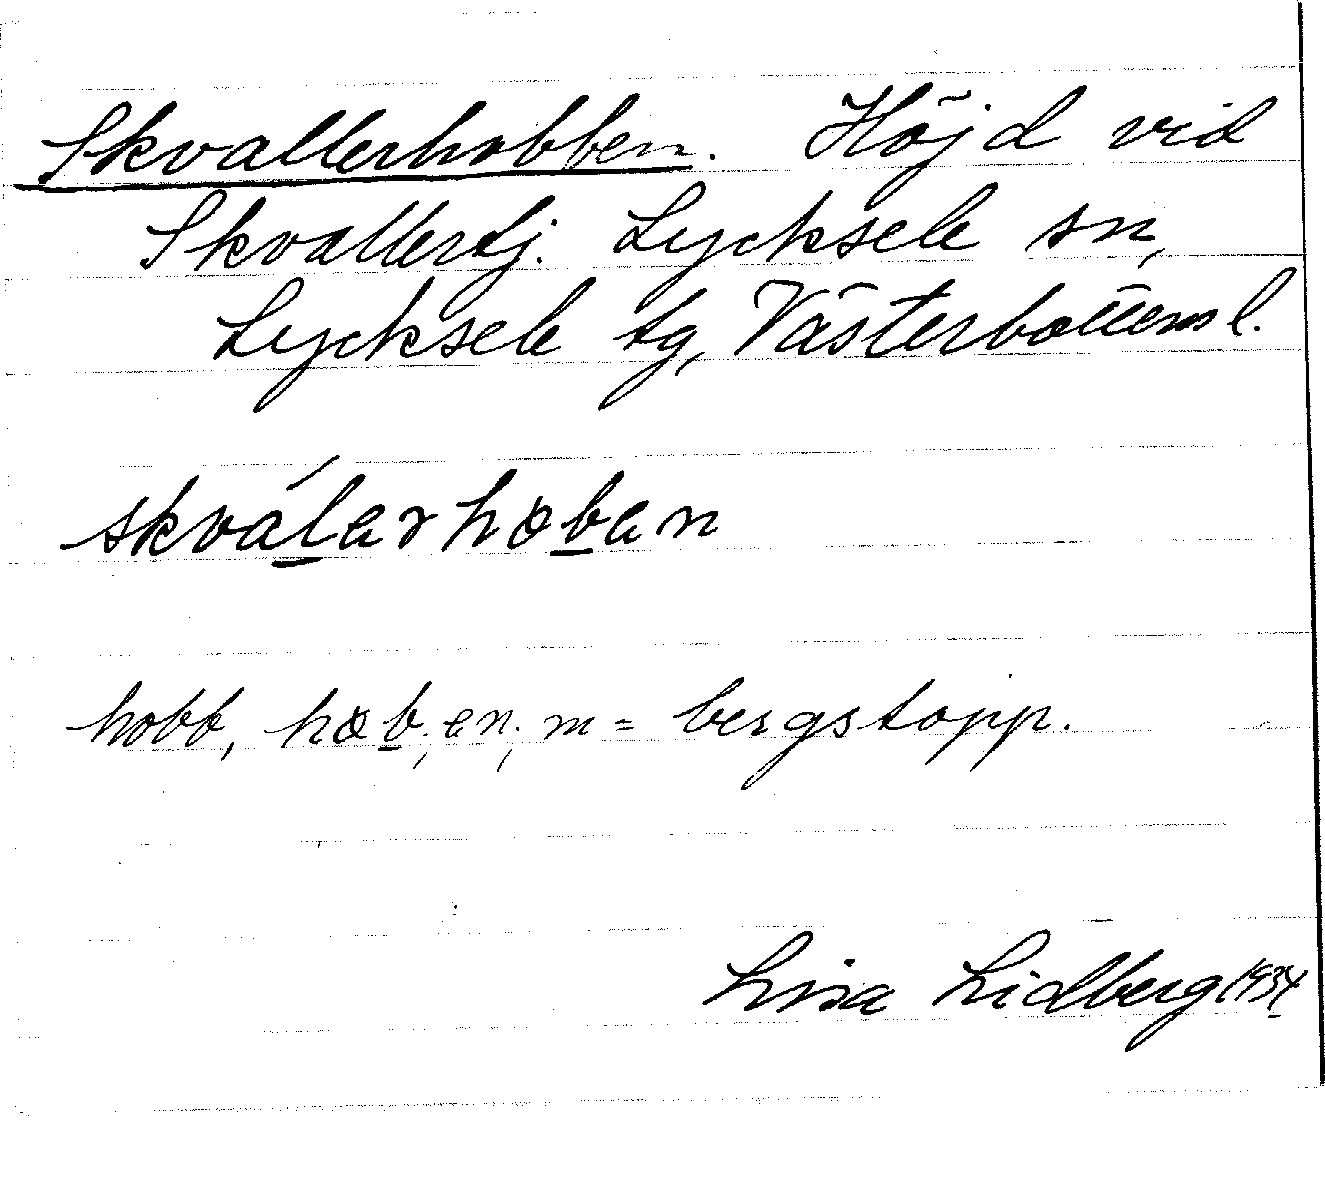 Skvallerhobben. Höjd vid
Skvallertj. Lycksele sn,
Lycksele tg, Västerbottens l.
skválerhoben
hobb, hob, en, m = bergstopp.
Lisa Lidberg 1934